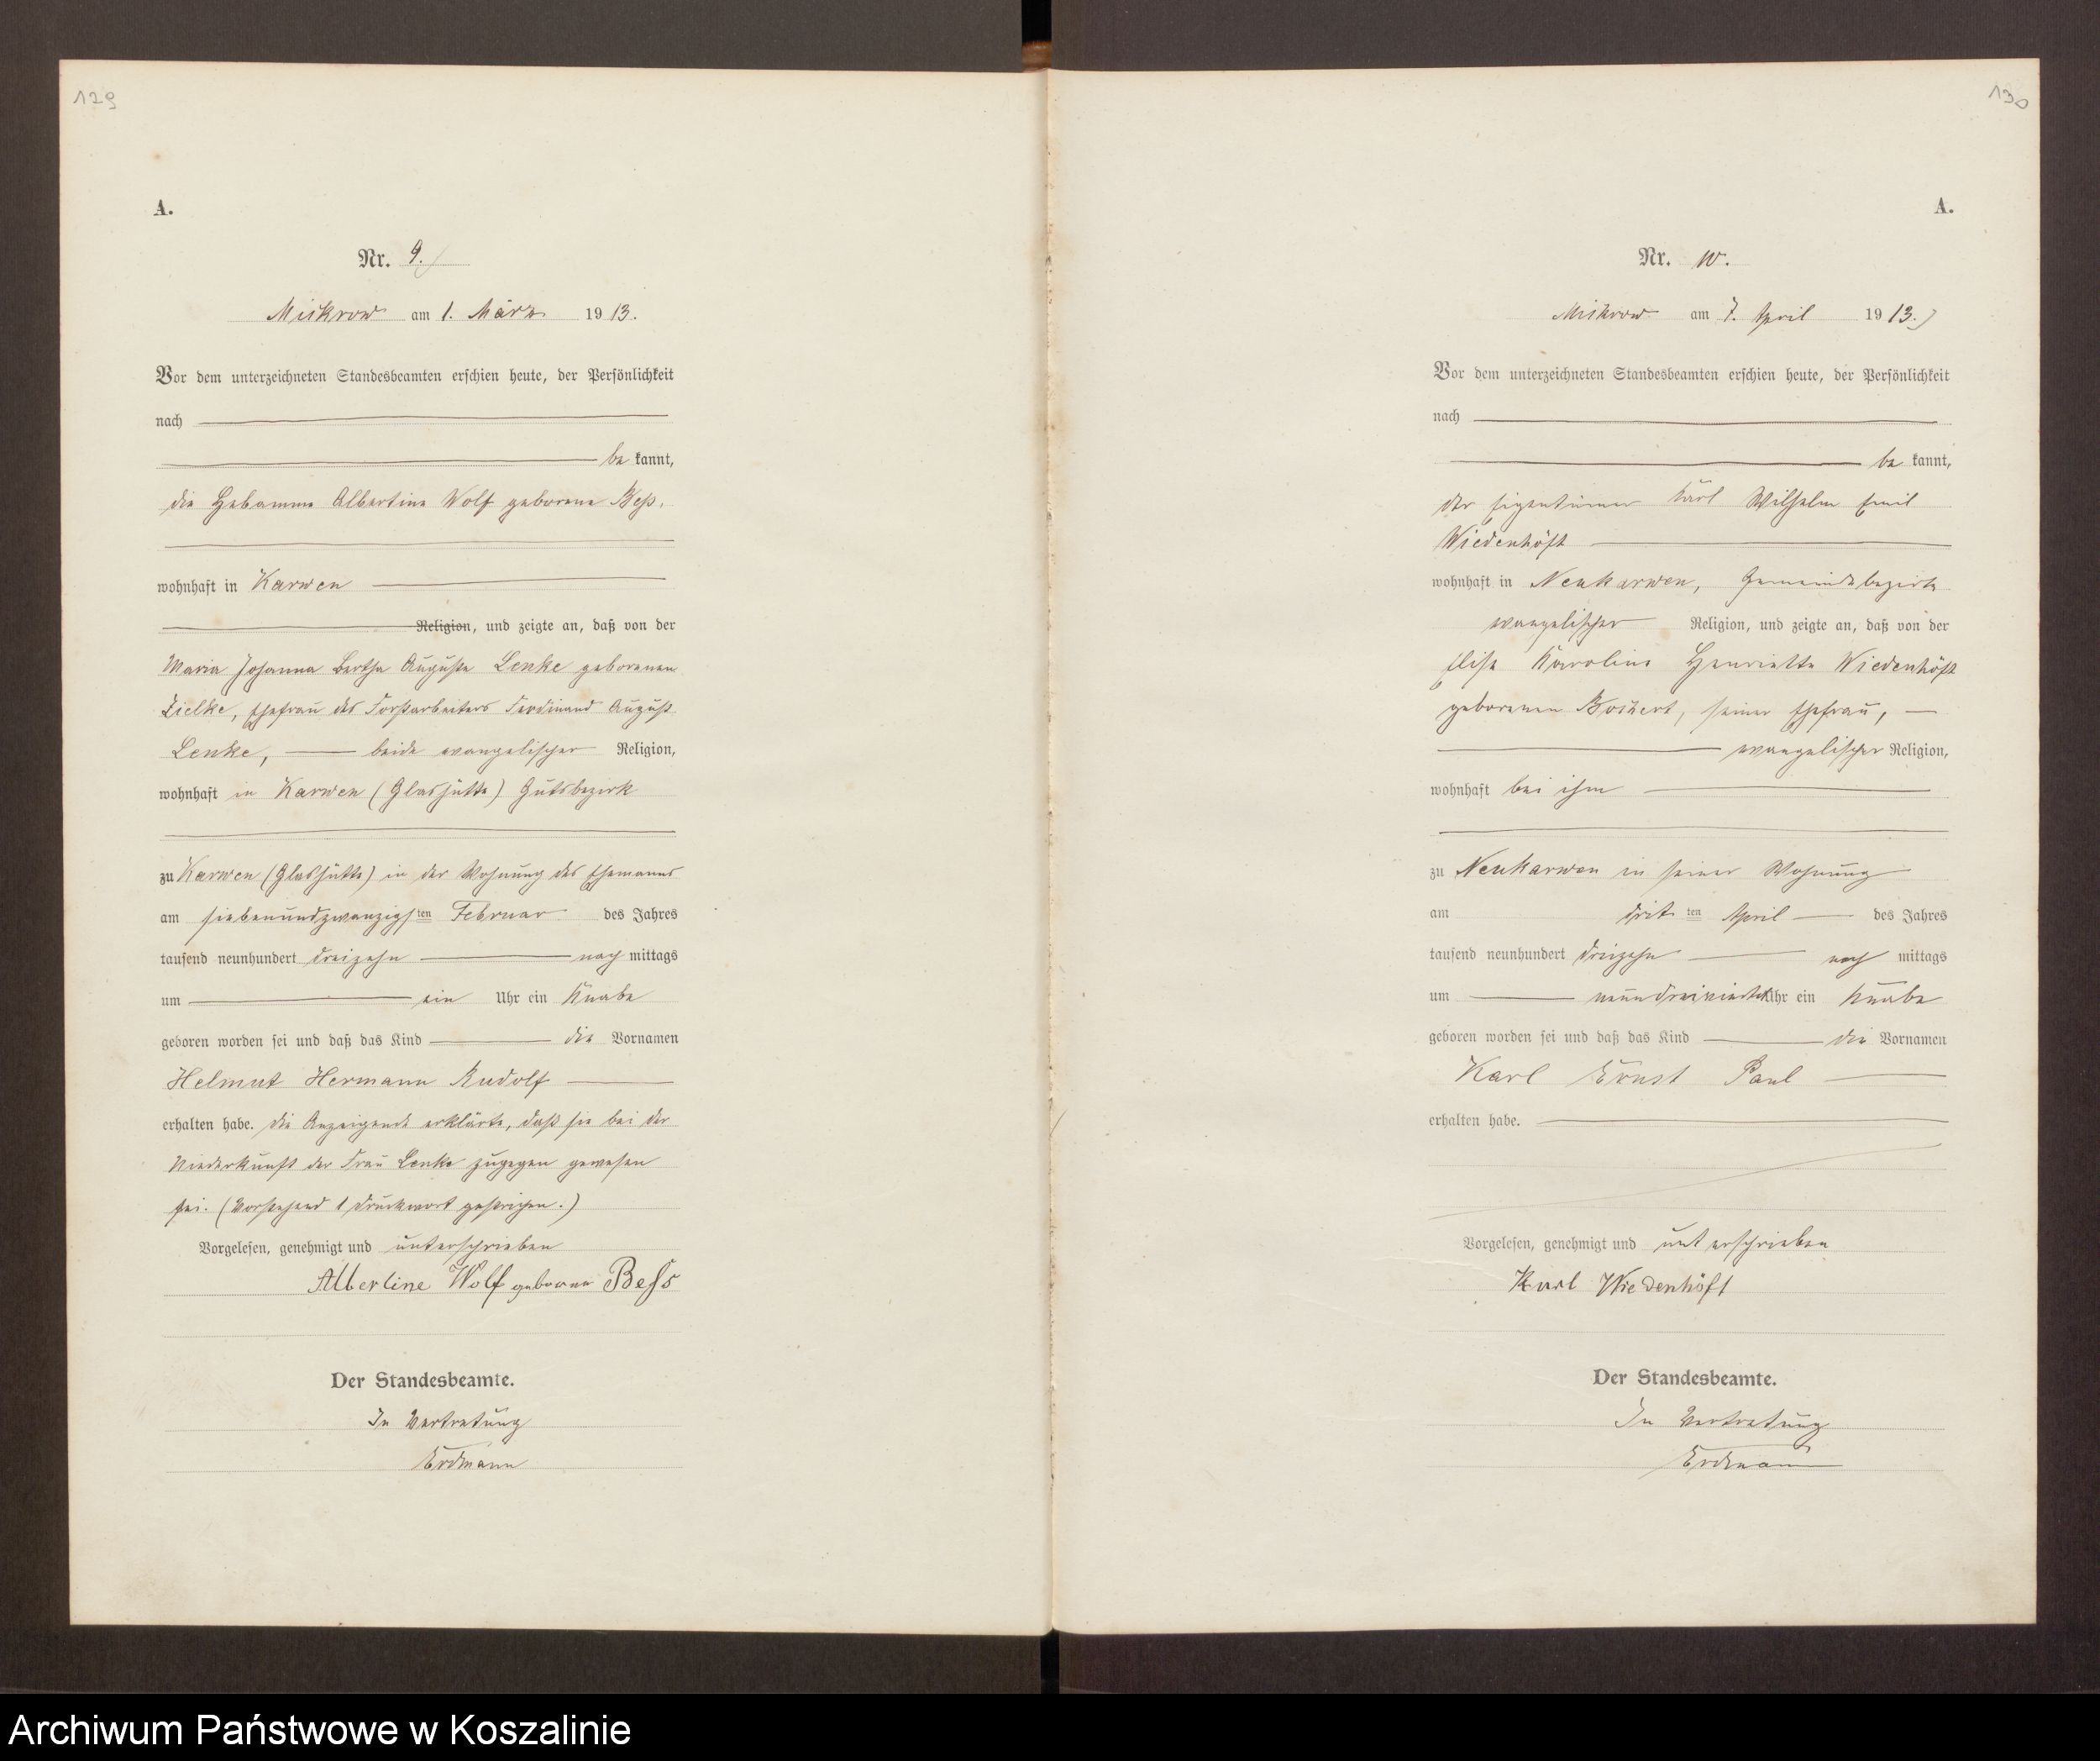 129
A.
Nr. 9.
Mickrow am 1. März 1913.
Vor dem unterzeichneten Standesbeamten erschien heute, der Persönlichkeit
nach
be kannt,
die Hebamme Albertine Wolf geborene Beß,
wohnhaft in Karwen
Religion, und zeigte an, daß von der
Maria Johanna Bertha Auguste Lenke geborenen
Zielke, Ehefrau des Forstarbeiters Ferdinand August
Lenke, beide evangelischer Religion,
wohnhaft in Karwen (Glashütte) Gutsbezirk
zu Karwen (Glashütte) in der Wohnung des Ehemanns
am siebenundzwanzigsten Februar des Jahres
tausend neunhundert dreizehn nach mittags
um ein Uhr ein Knabe
geboren worden sei und daß das Kind die Vornamen
Helmut Hermann Rudolf
erhalten habe. Die Anzeigende erklärte, daß sie bei der
Niederkunft der Frau Lenke zugegen gewesen
sei. (Vorstehend 1 Druckwort gestrichen.)
Vorgelesen, genehmigt und unterschrieben
Albertine Wolf geborene Bess
Der Standesbeamte.
In Vertretung
Erdmann
130
A.
Nr. 10.
Mickrow am 7. April 1913.
Vor dem unterzeichneten Standesbeamten erschien heute, der Persönlichkeit
nach
be kannt,
der Eigentümer Karl Wilhelm Emil
Wiedenhöft
wohnhaft in Neukarwen, Gemeindebezirk
evangelischer Religion, und zeigte an, daß von der
Elise Karoline Henriette Wiedenhöft
geborenen seiner Ehefrau,
evangelischer Religion,
wohnhaft bei ihm
zu Neukarwen in seiner Wohnung
am dritten April des Jahres
tausend neunhundert dreizehn nach mittags
um neundreiviertel Uhr ein Knabe
geboren worden sei und daß das Kind die Vornamen
Karl Ernst Paul
erhalten habe.
Vorgelesen, genehmigt und unterschrieben
Karl Wiedenhöft
Der Standesbeamte.
In Vertretung
Erdmann
Archiwum Państwowe w Koszalinie